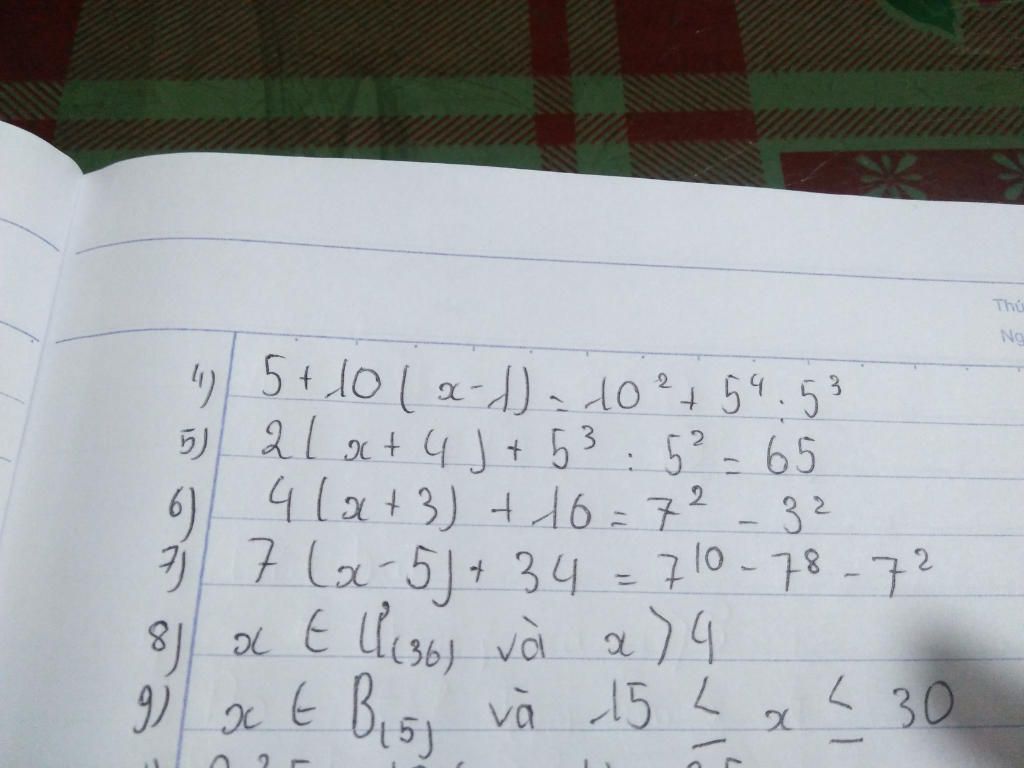 Thứ
Ng
4) 5 + 10 ( x - 1) = 10² + 5⁴ : 5³
5) 2 ( x + 4 ) + 5³ : 5² = 65
6) 4 (x + 3) + 16 = 7² - 3²
7) 7 (x - 5) + 34 = 7¹⁰ - 7⁸ - 7²
8) x ∈ Ư(36) và x > 4
9) x ∈ B(5) và 15 ≤ x ≤ 30